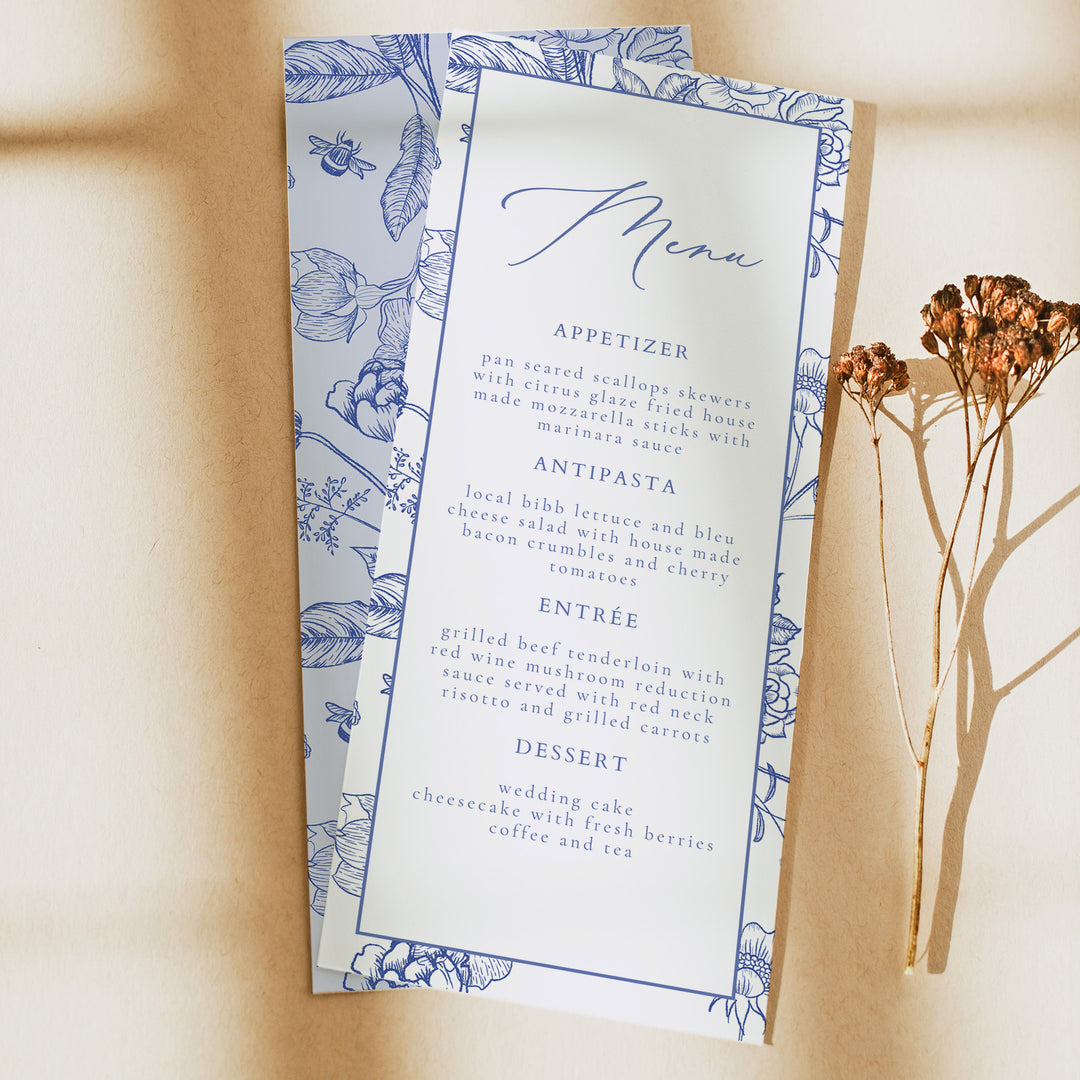 Menu
APPETIZER
pan seared scallops skewers
with citrus glaze fried house
made mozzarella sticks with
marinara sauce
ANTIPASTA
local bibb lettuce and bleu
cheese salad with house made
bacon crumbles and cherry
tomatoes
ENTRÉE
grilled beef tenderloin with
red wine mushroom reduction
sauce served with red neck
risotto and grilled carrots
DESSERT
wedding cake
cheesecake with fresh berries
coffee and tea